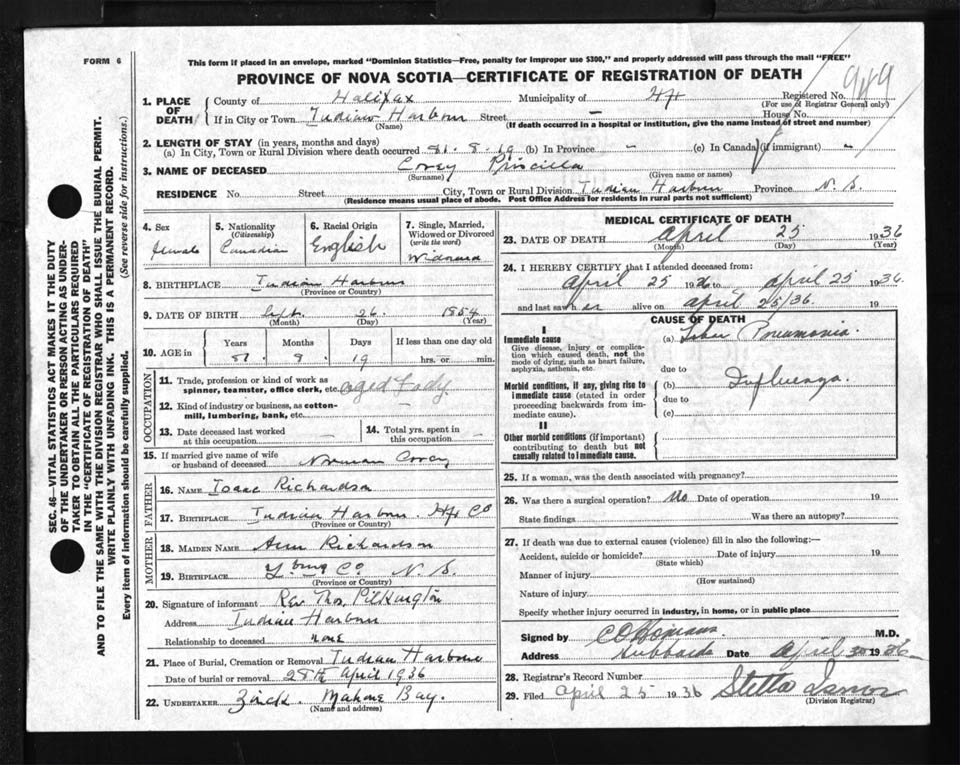 FORM 6
This form if placed in an envelope, marked "Dominion Statistics—Free, penalty for improper use $300," and properly addressed will pass through the mail "FREE"
PROVINCE OF NOVA SCOTIA—CERTIFICATE OF REGISTRATION OF DEATH
949
1. PLACE OF DEATH
County of Halifax Municipality of Hfx Registered No.
(For use of Registrar General only)
If in City or Town Indian Harbour Street — House No.
(Name) (If death occurred in a hospital or institution, give the name instead of street and number)
2. LENGTH OF STAY (in years, months and days)
(a) In City, Town or Rural Division where death occurred 81. 8. 19 (b) In Province - (c) In Canada (if immigrant) -
3. NAME OF DECEASED Covey Priscilla
(Surname) (Given name or names)
RESIDENCE No. Street City, Town or Rural Division Indian Harbour Province N. S.
(Residence means usual place of abode. Post Office Address for residents in rural parts not sufficient)
4. Sex Female
5. Nationality (Citizenship) Canadian
6. Racial Origin English
7. Single, Married, Widowed or Divorced (write the word) Widowed
8. BIRTHPLACE Indian Harbour
(Province or Country)
9. DATE OF BIRTH Sept. 26 1854
(Month) (Day) (Year)
10. AGE in Years Months Days If less than one day old
81. 8. 19 hrs. or min.
OCCUPATION
11. Trade, profession or kind of work as spinner, teamster, office clerk, etc. Aged Lady
12. Kind of industry or business, as cotton-mill, lumbering, bank, etc.
13. Date deceased last worked at this occupation —
14. Total yrs. spent in this occupation —
15. If married give name of wife or husband of deceased Norman Covey
FATHER
16. NAME Isaac Richardson
17. BIRTHPLACE Indian Harbour Hfx Co
(Province or Country)
MOTHER
18. MAIDEN NAME Ann Richardson
19. BIRTHPLACE Co N. S.
(Province or Country)
20. Signature of informant Rev Thos. Pilkington
Address Indian Harbour
Relationship to deceased none
21. Place of Burial, Cremation or Removal Indian Harbour
Date of burial or removal 28th April 1936
22. UNDERTAKER Zinck. Mahone Bay.
(Name and address)
MEDICAL CERTIFICATE OF DEATH
23. DATE OF DEATH April 25 1936
(Month) (Day) (Year)
24. I HEREBY CERTIFY that I attended deceased from:
April 25 1936 to April 25 1936
and last saw her alive on April 25/36. 19
CAUSE OF DEATH
I
Immediate cause
Give disease, injury or complication which caused death, not the mode of dying, such as heart failure, asphyxia, asthenia, etc.
(a) Lobar Pneumonia.
due to
Morbid conditions, if any, giving rise to immediate cause (stated in order proceeding backwards from immediate cause).
(b) Influenza.
due to
(c)
II
Other morbid conditions (if important) contributing to death but not causally related to immediate cause.
25. If a woman, was the death associated with pregnancy?
26. Was there a surgical operation? No Date of operation 19
State findings Was there an autopsy?
27. If death was due to external causes (violence) fill in also the following:—
Accident, suicide or homicide? Date of injury 19
(State which)
Manner of injury
(How sustained)
Nature of injury
Specify whether injury occurred in industry, in home, or in public place
Signed by C O Homans M.D.
Address Hubbards Date April 1936
28. Registrar's Record Number
29. Filed April 25 1936 Stella
(Division Registrar)
SEC. 46—VITAL STATISTICS ACT MAKES IT THE DUTY
OF THE UNDERTAKER OR PERSON ACTING AS UNDER-
TAKER TO OBTAIN ALL THE PARTICULARS REQUIRED
IN THE "CERTIFICATE OF REGISTRATION OF DEATH"
AND TO FILE THE SAME WITH THE DIVISION REGISTRAR WHO SHALL ISSUE THE BURIAL PERMIT.
WRITE PLAINLY WITH UNFADING INK. THIS IS A PERMANENT RECORD.
Every item of information should be carefully supplied. (See reverse side for instructions.)